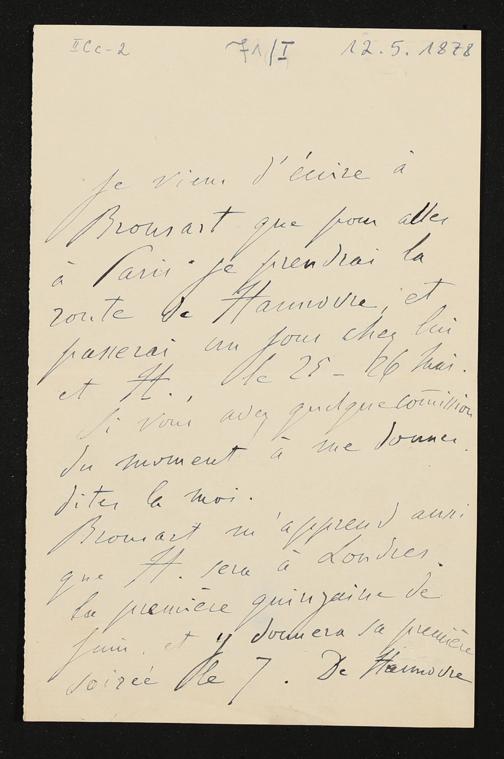 IICc-2 71/I 12.5.1878
Je viens d'écrire à
Bronsart que pour aller
à Paris je prendrai la
route de Hannovre, et
passerai un jour chez lui
et H., le 25 – 26 Mai.
Si vous avez quelque comission
du moment à me donner
dites la moi.
Bronsart m'apprend aussi
que H. sera à Londres
la première quinzaine de
Juin, et y donnera sa première
soirée le 7. De Hannovre